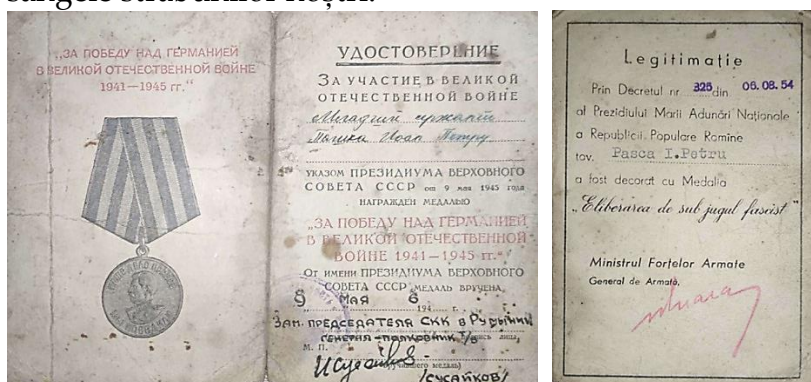 sângele străbunilor noștri.
„ЗА ПОБЕДУ НАД ГЕРМАНИЕЙ
В ВЕЛИКОЙ ОТЕЧЕСТВЕННОЙ ВОЙНЕ
1941—1945 гг.“
УДОСТОВЕРЕНИЕ
ЗА УЧАСТИЕ В ВЕЛИКОЙ
ОТЕЧЕСТВЕННОЙ ВОЙНЕ
Младший сержант
Иоан Петру
УКАЗОМ ПРЕЗИДИУМА ВЕРХОВНОГО
СОВЕТА СССР от 9 мая 1945 года
НАГРАЖДЕН МЕДАЛЬЮ
„ЗА ПОБЕДУ НАД ГЕРМАНИЕЙ
В ВЕЛИКОЙ ОТЕЧЕСТВЕННОЙ
ВОЙНЕ 1941—1945 гг.“
От имени ПРЕЗИДИУМА ВЕРХОВНОГО
СОВЕТА СССР МЕДАЛЬ ВРУЧЕНА
9 Мая 194 6 г.
ЗАМ. ПРЕДСЕДАТЕЛЯ СКК в Румынии
ГЕНЕРАЛ-ПОЛКОВНИК Т/В
М. П.
/СУСАЙКОВ/
Legitimație
Prin Decretul nr. 325 din 06.08.54
al Prezidiului Marii Adunări Naționale
a Republicii Populare Romîne
tov. Pasca I.Petru
a fost decorat cu Medalia
„Eliberarea de sub jugul fascist"
Ministrul Forțelor Armate
General de Armată,